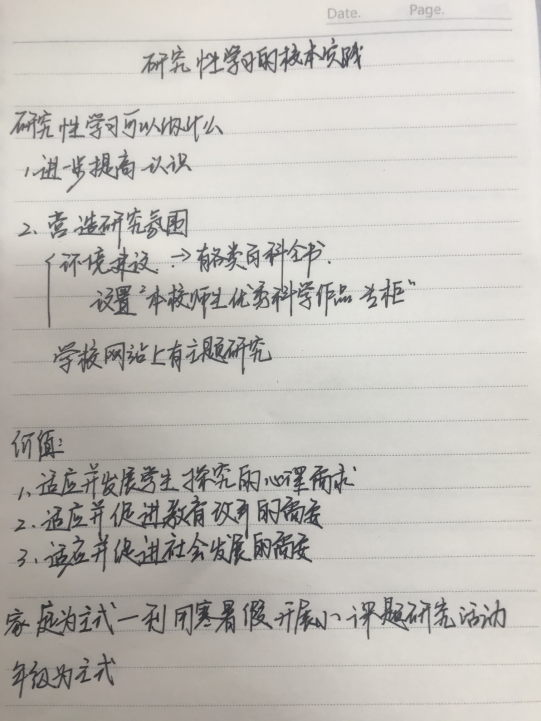 Date. Page.
研究性学习的校本实践
研究性学习可以做什么
1.进一步提高认识
2.营造研究氛围
环境建设→有各类百科全书.
设置"本校师生优秀科学作品专柜"
学校网站上有主题研究
价值:
1.适应并发展学生探究的心理需求
2.适应并促进教育改革的需要
3.适应并促进社会发展的需要
家庭为主式—利用寒暑假开展小课题研究活动
年级为主式